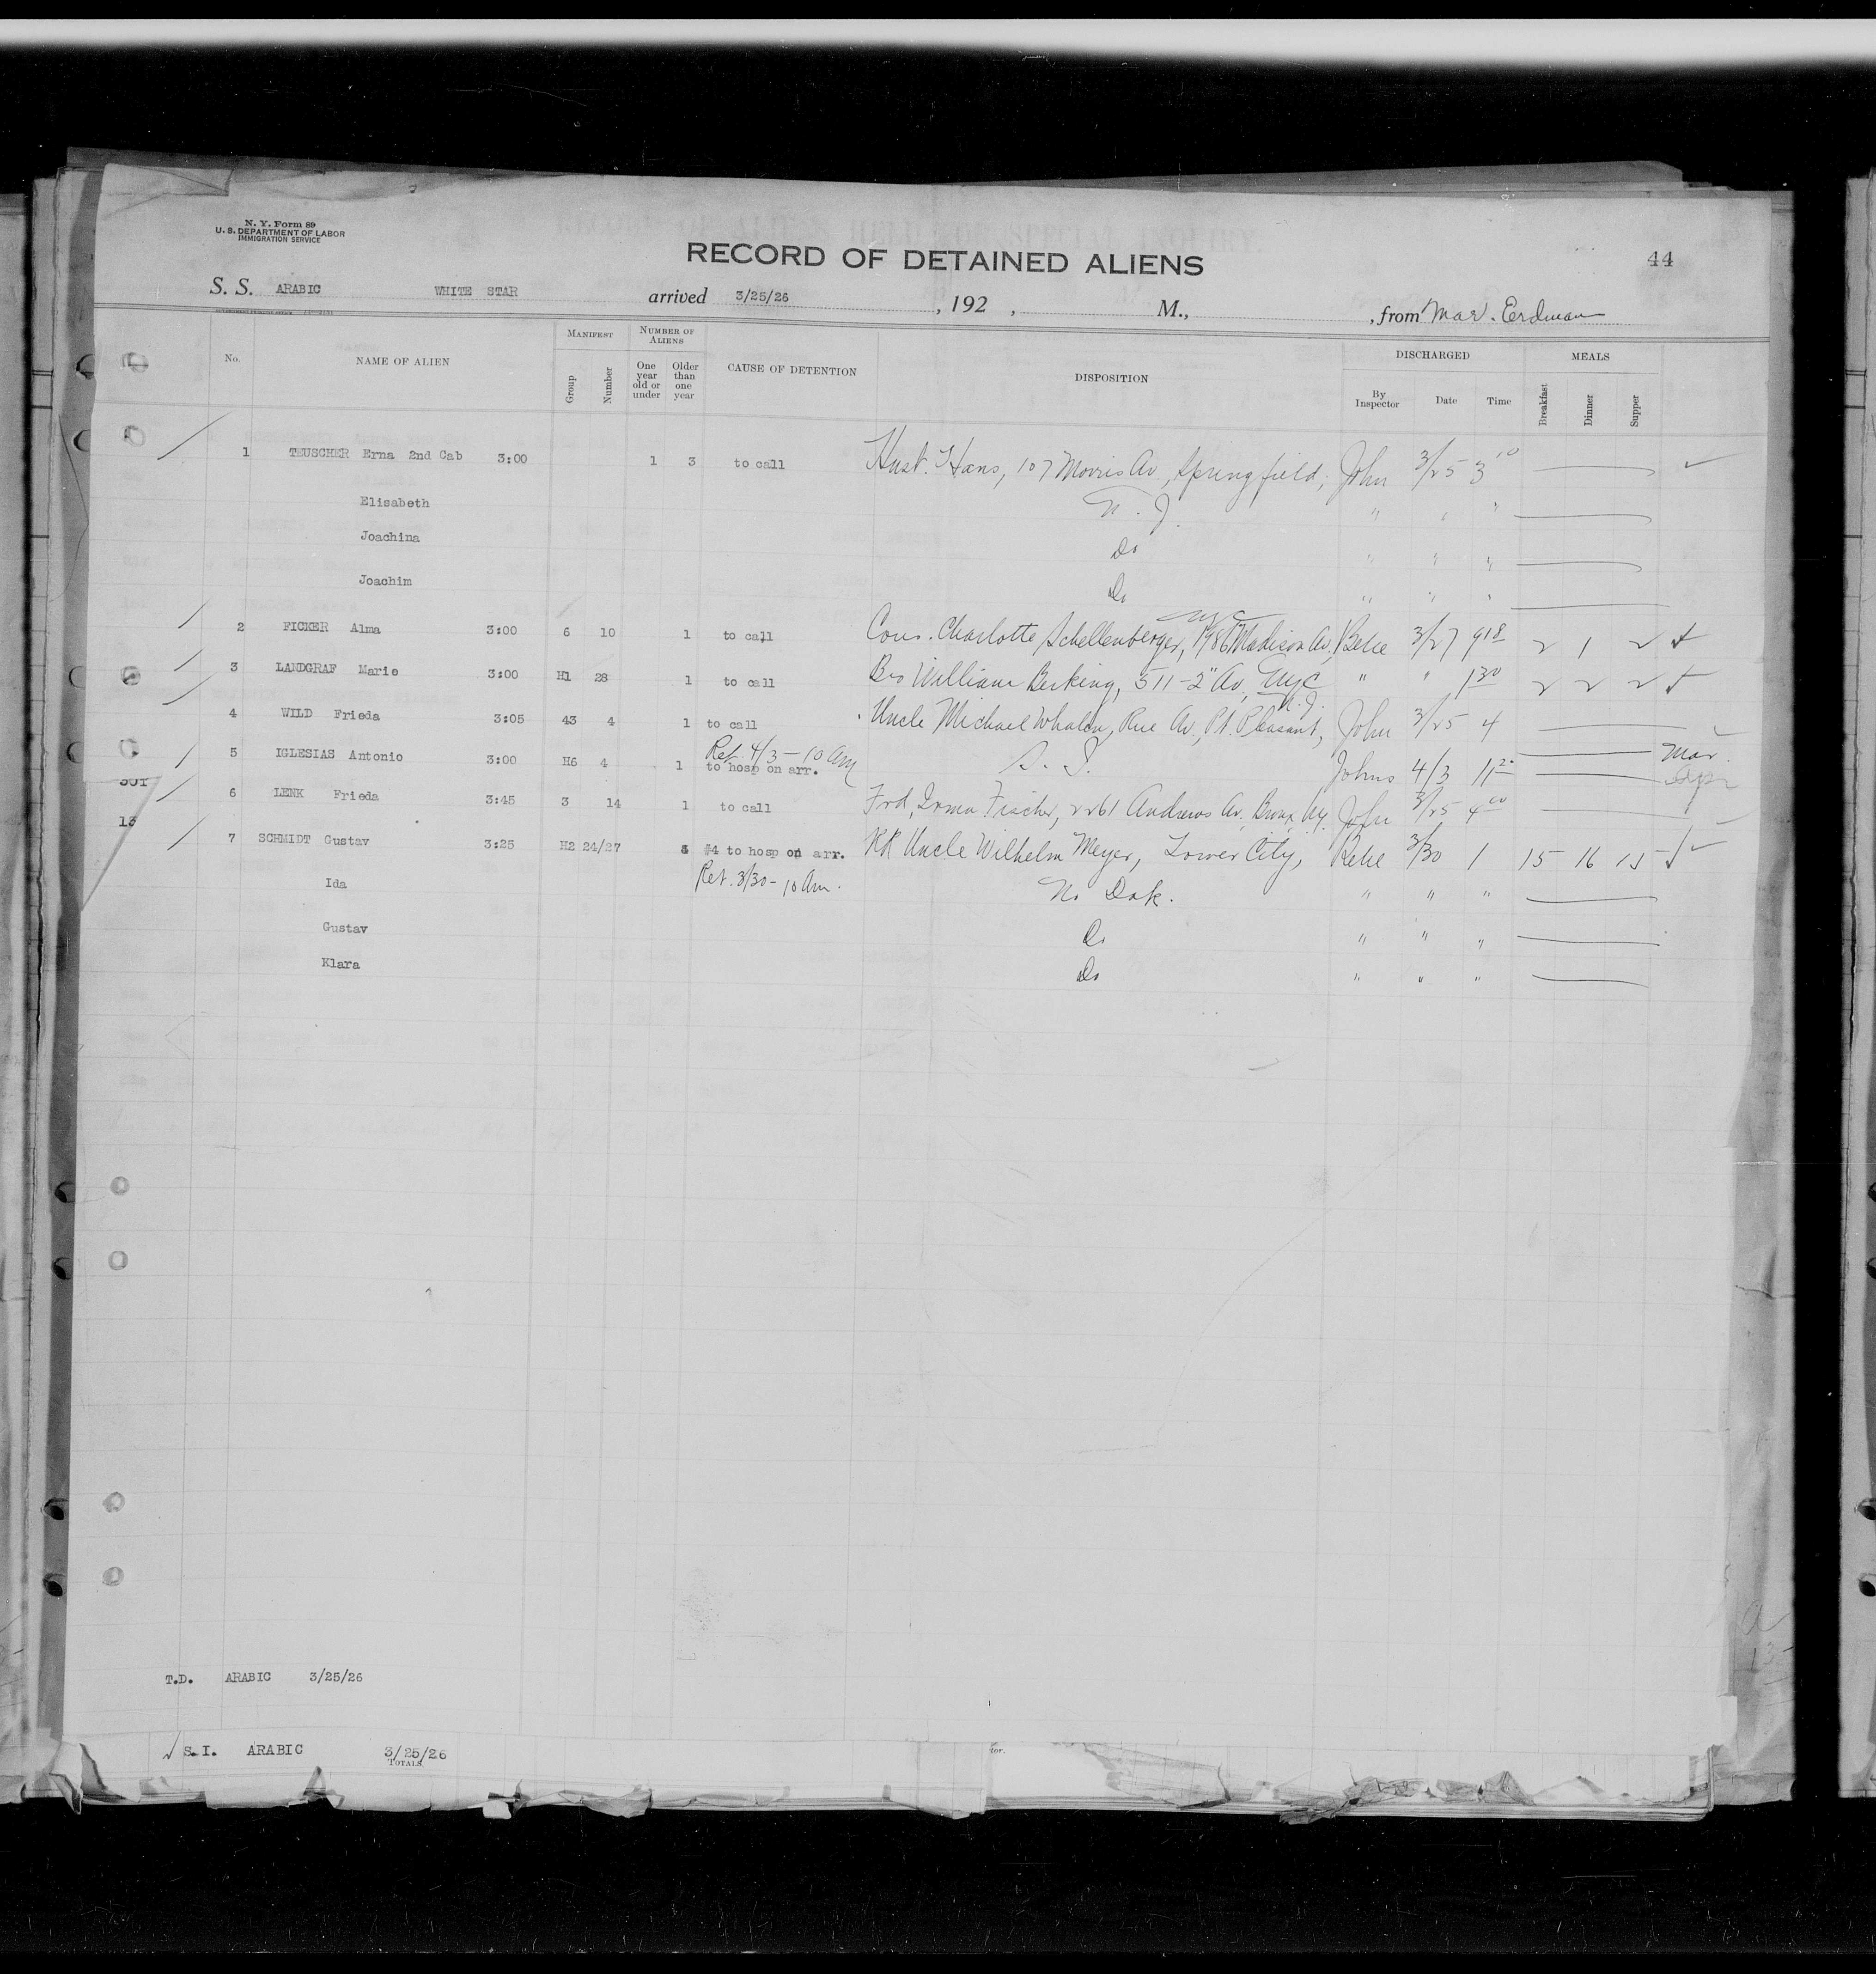 N. Y. Form 89
U. S. DEPARTMENT OF LABOR
IMMIGRATION SERVICE
RECORD OF DETAINED ALIENS
44
S. S. ARABIC WHITE STAR arrived 3/25/26 , 192 , M., , from Mar. Erdman
No. NAME OF ALIEN MANIFEST Group Number NUMBER OF ALIENS One year old or under Older than one year CAUSE OF DETENTION DISPOSITION DISCHARGED By Inspector Date Time MEALS Breakfast Dinner Supper
1 TEUSCHER Erna 2nd Cab 3:00 1 3 to call Husb. Hans, 107 Morris Av., Springfield, John 3/25 3 10
Elisabeth N. J. " " "
Joachina Do " " "
Joachim Do " " "
NYC
2 FICKER Alma 3:00 6 10 1 to call Cous. Charlotte Schellenberger, 1986 Madison Av., 3/27 9 18 2 1 2
3 LANDGRAF Marie 3:00 H1 28 1 to call Bro William Berking, 511-2" Av, NYC " " 1 30 2 2 2
N. J.
4 WILD Frieda 3:05 43 4 1 to call Uncle Michael Whalen, Rue Av., Pt. Pleasant, John 3/25 4
Ret. 4/3 - 10 Am
5 IGLESIAS Antonio 3:00 H6 4 1 to hosp on arr. S. I. Johns 4/3 11 20 Mar.
Apr
301
6 LENK Frieda 3:45 3 14 1 to call Frd. Irma Fischer, 2261 Andrews Av, Bronx, Ny. John 3/25 4 00
13
7 SCHMIDT Gustav 3:25 H2 24/27 #4 to hosp on arr. RR Uncle Wilhelm Meyer, Tower City, 3/30 1 15 16 15
Ida Ret. 3/30 - 10 Am. No Dak. " " "
Gustav Do " " "
Klara Do " " "
T.D. ARABIC 3/25/26
S.I. ARABIC 3/25/26
TOTALS
tor.